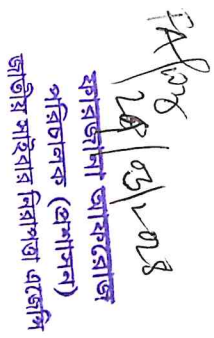 ২৪/০৩/২০২৪
ফারজানা আফরোজ
পরিচালক (প্রশাসন)
জাতীয় সাইবার নিরাপত্তা এজেন্সি